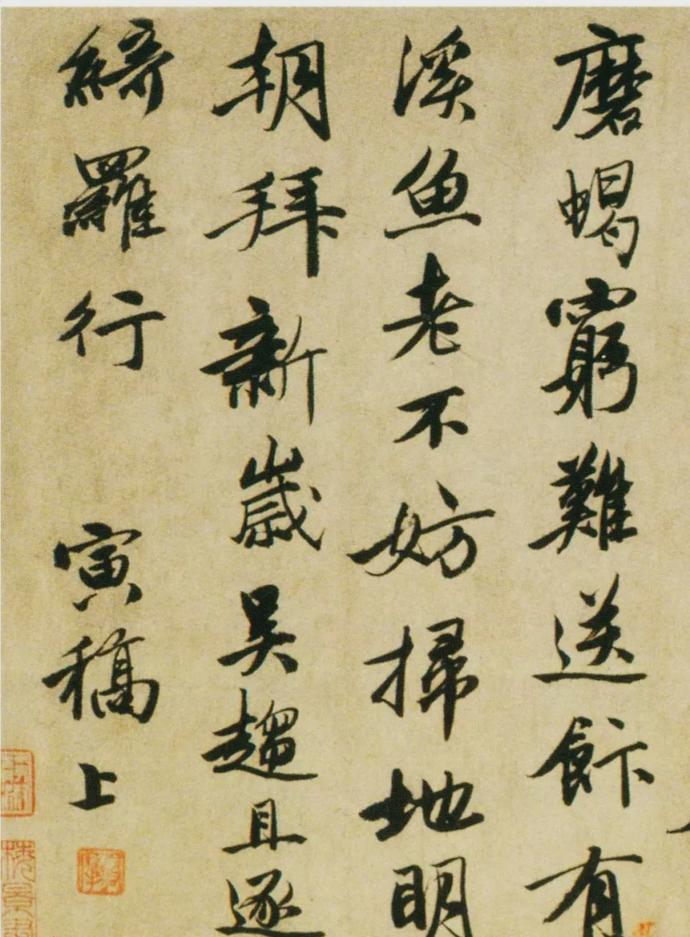 磨蝎窮難送餘有
溪魚老不妨掃地明
朝拜新歲吳趨且逐
綺羅行
寅稿上